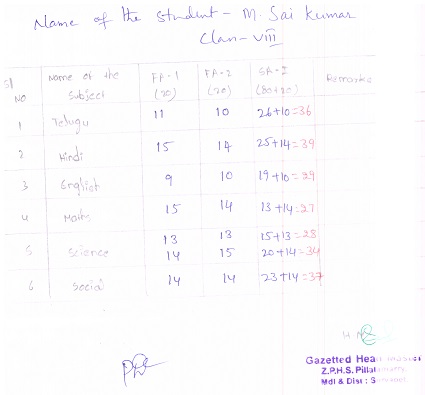 Name of the Student - M. Sai Kumar
Class - VIII
Sl NO Name of the Subject FA-1 (20) FA-2 (20) SA-2 (80+20) Remarks
1 Telugu 11 10 26+10=36
2 Hindi 15 14 25+14=39
3 English 9 10 19+10=29
4 Maths 15 14 13+14=27
5 Science 13 13 15+13=28
14 15 20+14=34
6 Social 14 14 23+14=37
Gazetted Head
Z.P.H.S. Pillal
Mdl & Dist : S